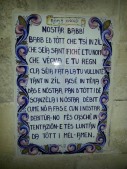 NOSTAR BABB
BABB ED TOTT CHE T'SI IN ZIL
CHE SIRA SANT IECHE E' TU NOM
CHE VEGNA E' TU REGN
CLA SEIA FATA LA TU VULUNTE
TANT IN ZIL ACSÈ IN TERA
DAS E' NOSTAR PAN D'TOTT I DE
SCANZELA I NOSTAR DEBIT
CUME NO A FASE CUN I NOSTAR
DEBITUR · NO FES CASCHE IN
TENTAZION E TES LUNTAN
DA TOTT I MEL · AMEN.